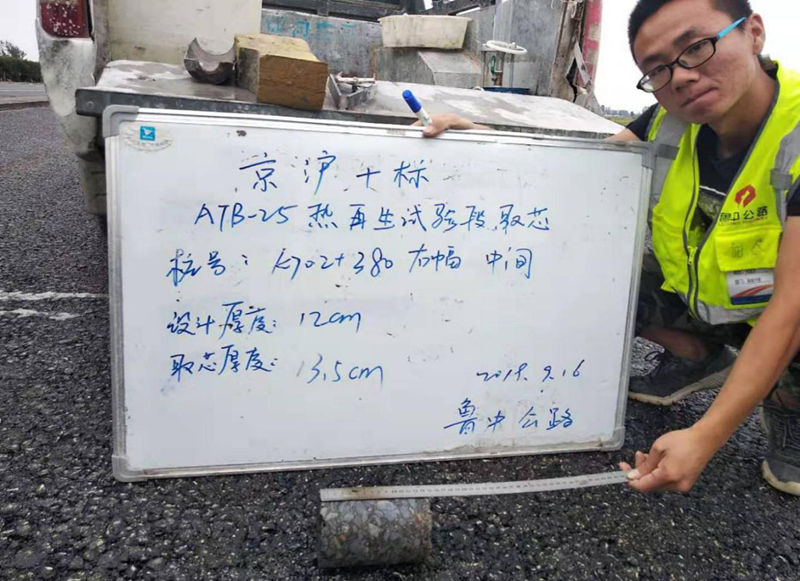 京沪十标
ATB-25热再生试验段取芯
桩号：K702+380 右幅 中间
设计厚度：12cm
取芯厚度：13.5cm
2019.9.16
鲁中公路
中公路